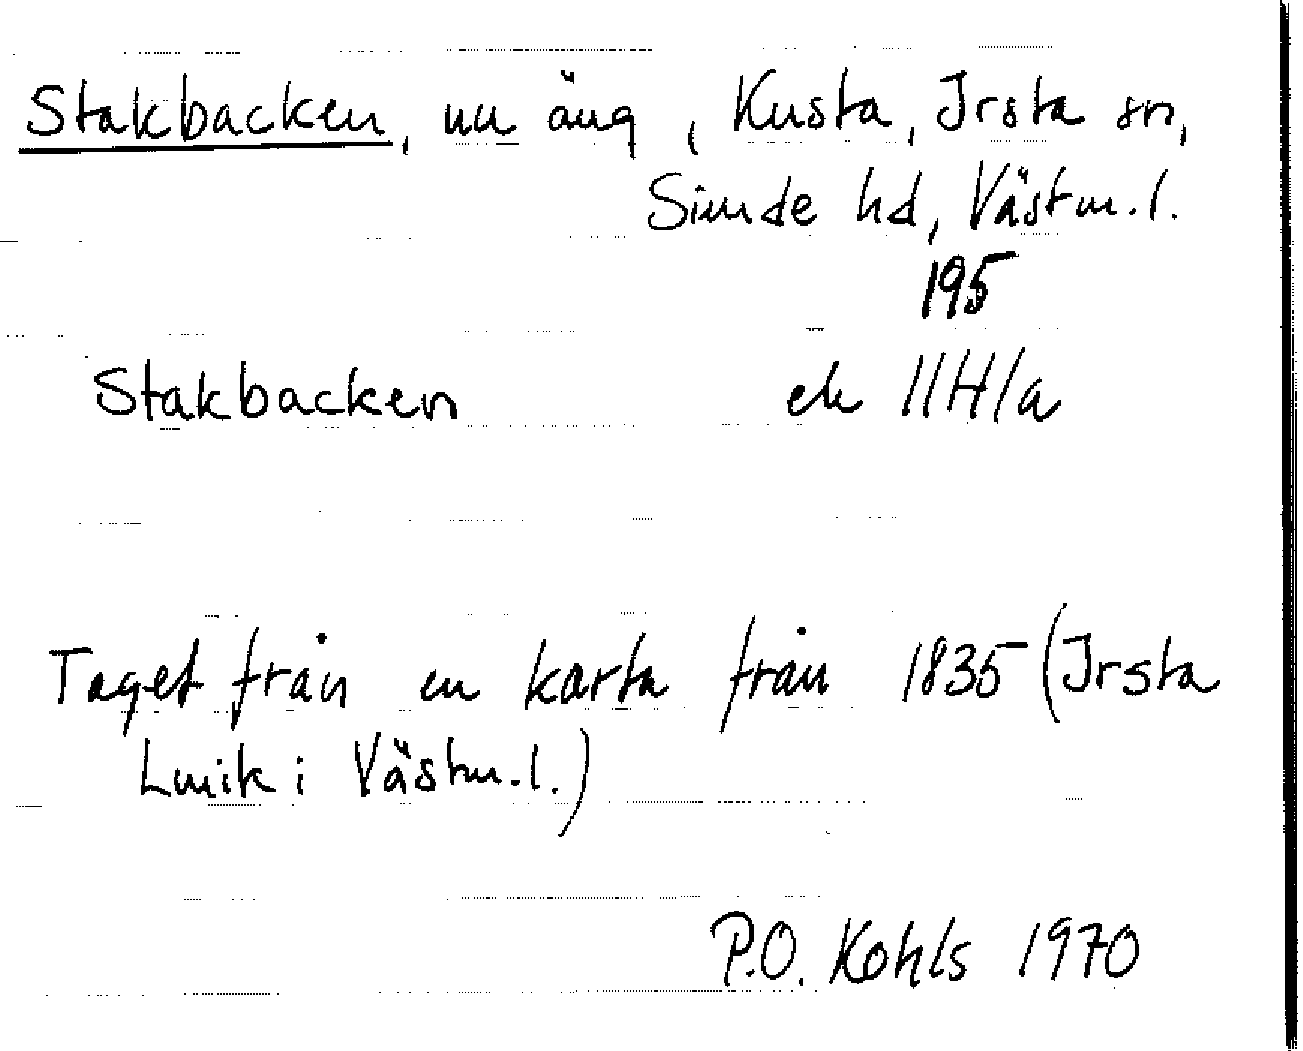 Stakbacken, nu äng, Kusta, Irsta sn,
Simde hd, Västm.l.
195
Stakbacken ek 11H1a
Taget från en karta från 1835 (Irsta
Lmik i Västm.l.)
P.O. Kohls 1970